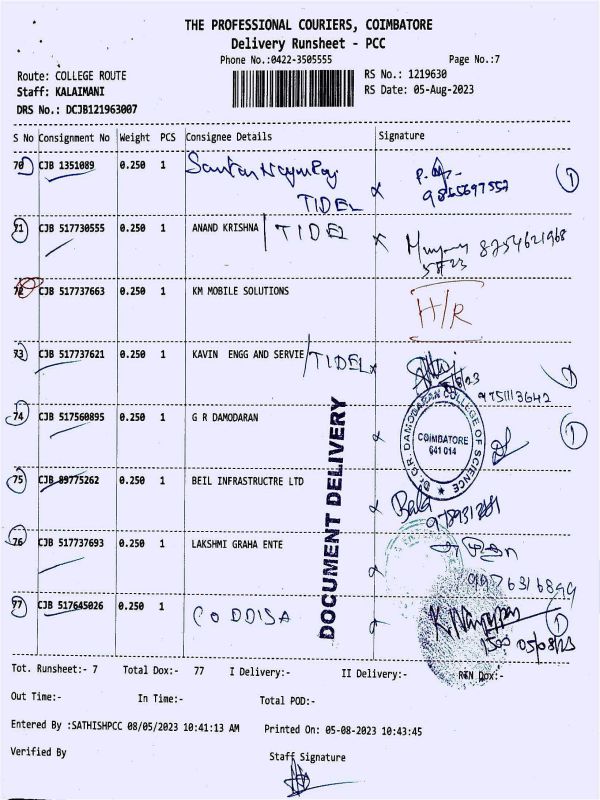 THE PROFESSIONAL COURIERS, COIMBATORE
Delivery Runsheet - PCC
Phone No.:0422-3505555 Page No.:7
Route: COLLEGE ROUTE RS No.: 1219630
Staff: KALAIMANI RS Date: 05-Aug-2023
DRS No.: DCJB121963007
S No Consignment No Weight PCS Consignee Details Signature
70 CJB 1351089 0.250 1
TIDEL
71 CJB 517730555 0.250 1 ANAND KRISHNA TIDEL 8754621968
72 CJB 517737663 0.250 1 KM MOBILE SOLUTIONS H/R
73 CJB 517737621 0.250 1 KAVIN ENGG AND SERVIE TIDEL
9751113642
74 CJB 517560895 0.250 1 G R DAMODARAN
Dr. G.R. DAMODARAN COLLEGE OF SCIENCE
COIMBATORE
641 014
75 CJB 89775262 0.250 1 BEIL INFRASTRUCTRE LTD
Bala
76 CJB 517737693 0.250 1 LAKSHMI GRAHA ENTE
77 CJB 517645026 0.250 1
05/08/23
DOCUMENT DELIVERY
Tot. Runsheet:- 7 Total Dox:- 77 I Delivery:- II Delivery:- RTN Dox:-
Out Time:- In Time:- Total POD:-
Entered By :SATHISHPCC 08/05/2023 10:41:13 AM Printed On: 05-08-2023 10:43:45
Verified By Staff Signature